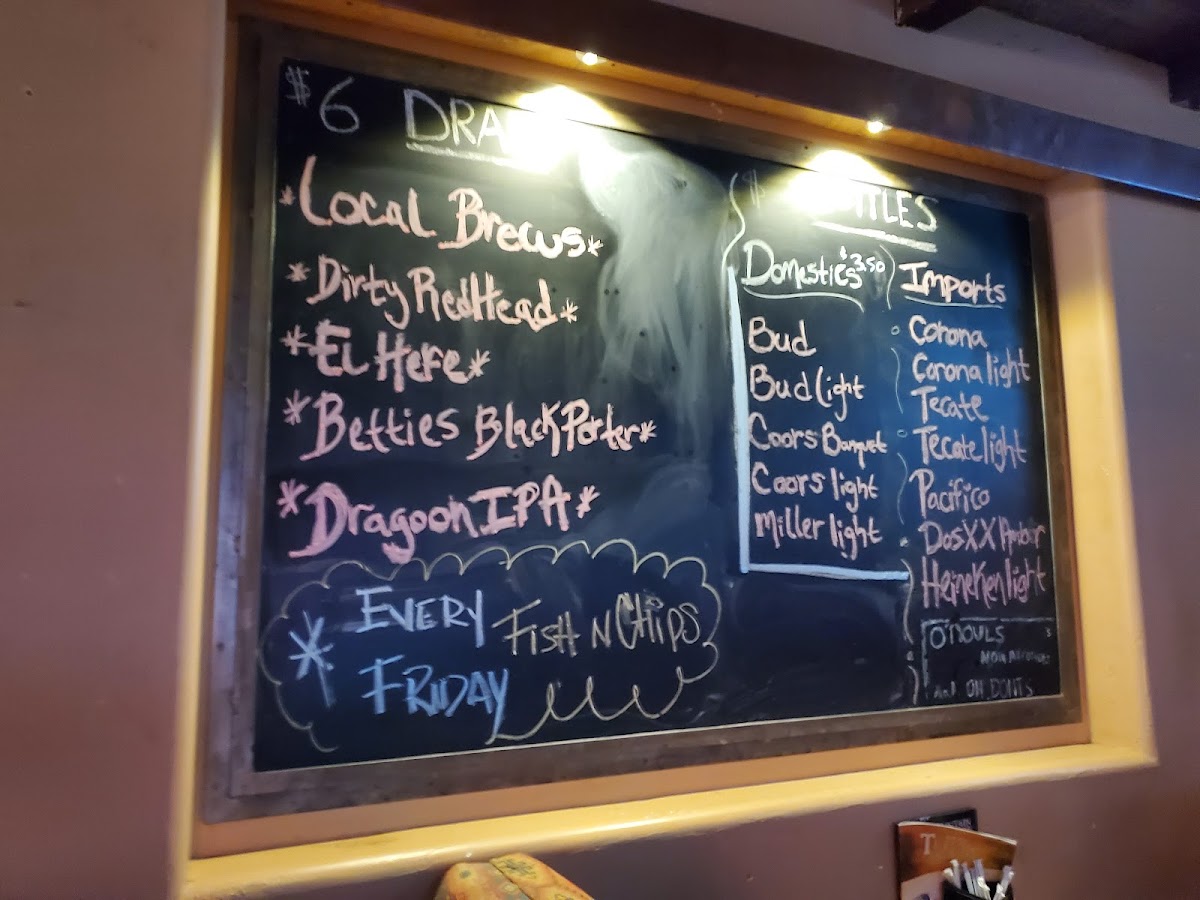 $6 DRA
*Local Brews*
*Dirty RedHead*
*El Hefe*
*Betties Black Porter*
*Dragoon IPA*
* EVERY FRIDAY
FISH N CHIPS
$ TTLES
Domestics $3.50
Bud
Bud light
Coors Banquet
Coors light
Miller light
Imports
Corona
Corona light
Tecate
Tecate light
Pacifico
Dos XX Amber
Heineken light
O'DOULS
T